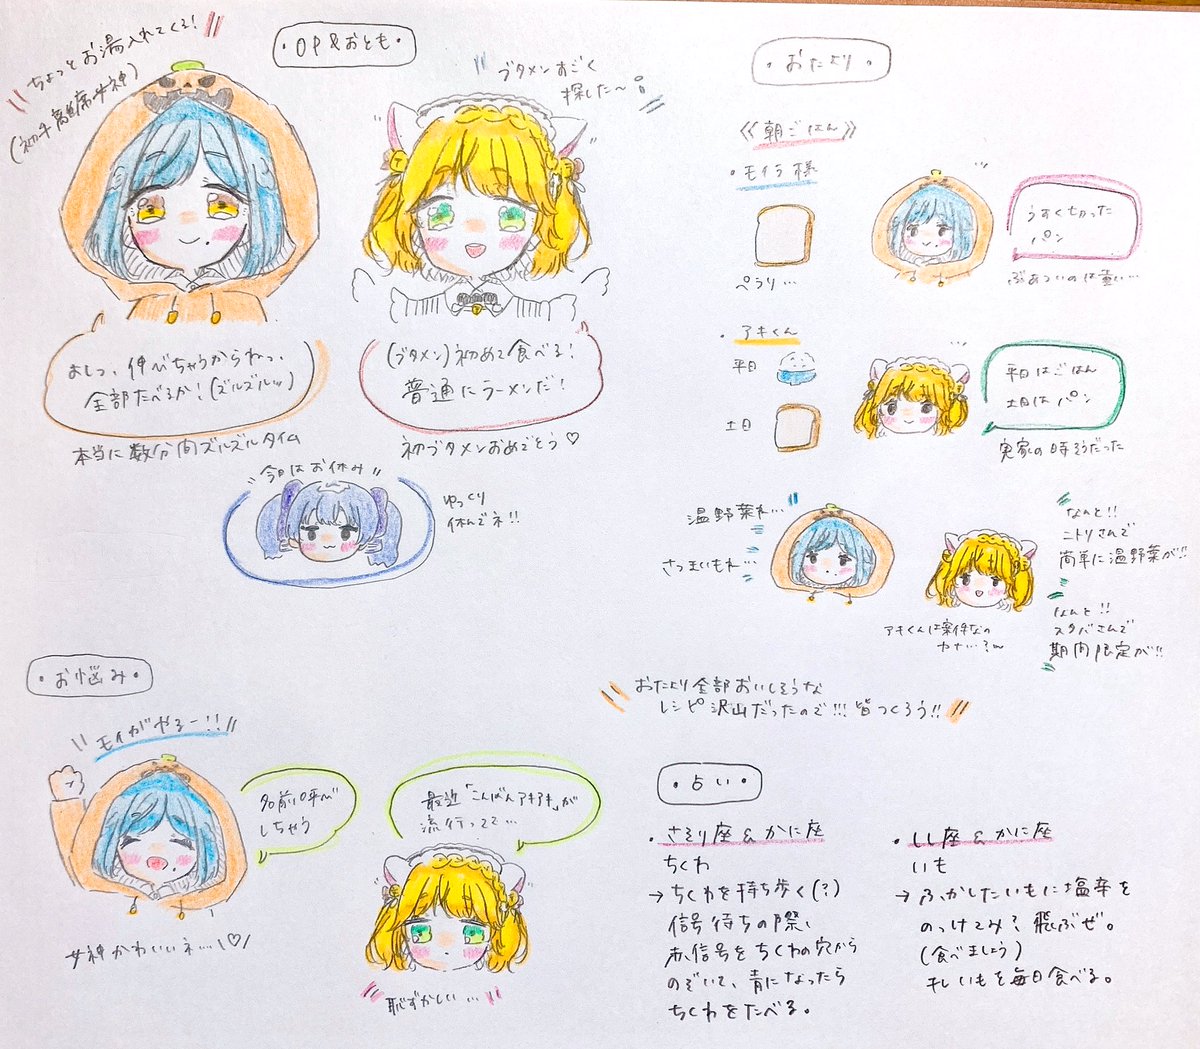 ・OP&おとも・
ちょっとお湯入れてくる!
(初手離席女神)
ブタメンすごく
探した〜
よしっ、伸びちゃうからねっ、
全部たべるか!(ズルズルッ)
本当に数分間ズルズルタイム
(ブタメン)初めて食べる!
普通にラーメンだ!
初ブタメンおめでとう♡
今日はお休み
ゆっくり
休んでネ!!
・おたより・
《朝ごはん》
・モイラ様
ぺらり…
うすくちかった
パン
ぶあついのは重い…
・アキくん
平日
土日
平日はごはん
土日はパン
実家の時そうだった
温野菜ネ…
さつまいもネ…
なんと!!
ニトリさんで
簡単に温野菜が!!
なんと!!
スタバさんで
期間限定が!!
アキくんは案件なの
かな…?w
おたより全部おいしそうな
レシピ沢山だったので!!!皆つくろう!!
・お悩み・
モイがやるー!!
名前呼び
しちゃう
女神かわいいネ…♡
最近「こんばんアキアキ」が
流行ってて…
恥ずかしい…
・占い・
・さそり座&かに座
ちくわ
→ちくわを持ち歩く(?)
信号待ちの際、
赤信号をちくわの穴から
のぞいて、青になったら
ちくわをたべる。
・しし座&かに座
いも
→ふかしたいもに塩辛を
のっけてみ?飛ぶぜ。
(食べましょう)
干しいもを毎日食べる。